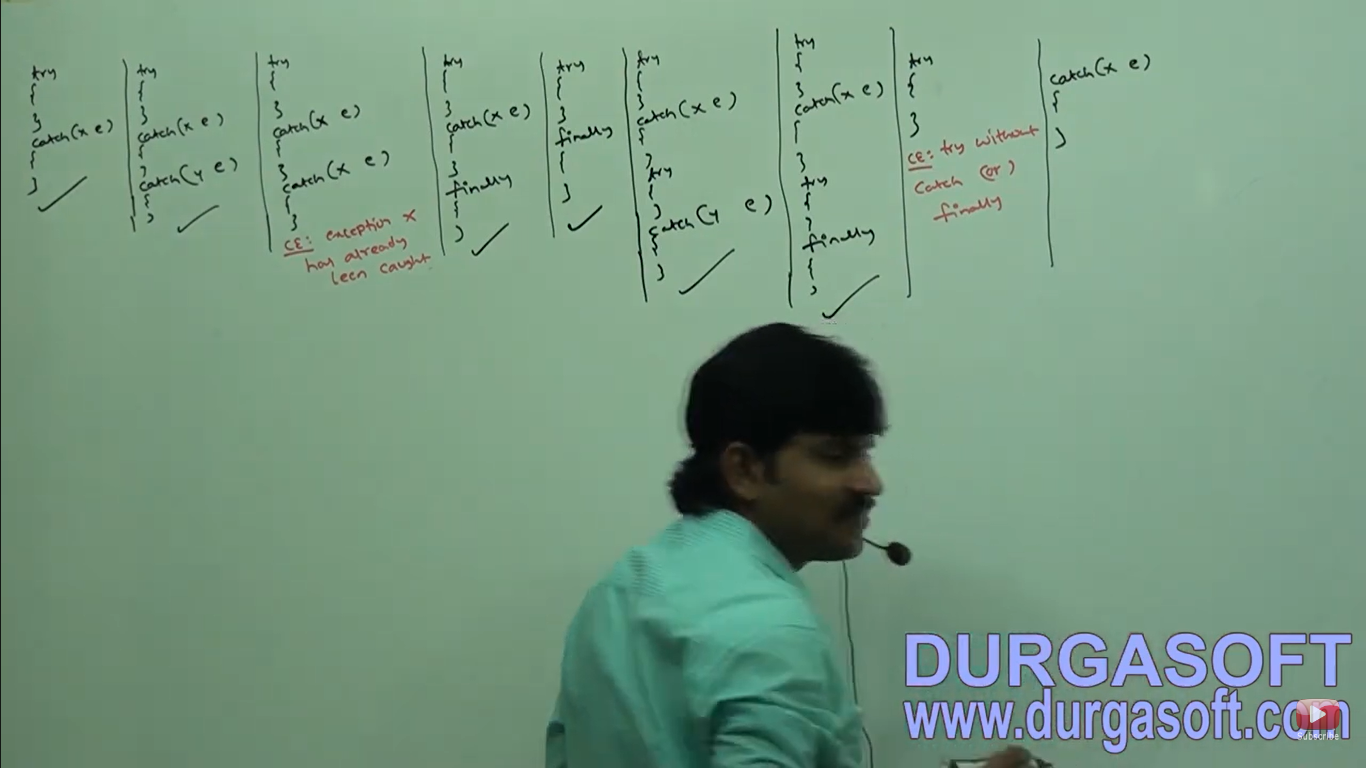 try
{
}
catch(x e)
{
}
try
{
}
catch(x e)
{
}
catch(y e)
{
}
try
{
}
catch(x e)
{
}
catch(x e)
{
}
CE: exception x
has already
been caught
try
{
}
catch(x e)
{
}
finally
{
}
try
{
}
finally
{
}
try
{
}
catch(x e)
{
}
try
{
}
catch(y e)
{
}
try
{
}
catch(x e)
{
}
try
{
}
finally
{
}
try
{
}
CE: try without
catch (or)
finally
catch(x e)
{
}
DURGASOFT
www.durgasoft.com
Subscribe